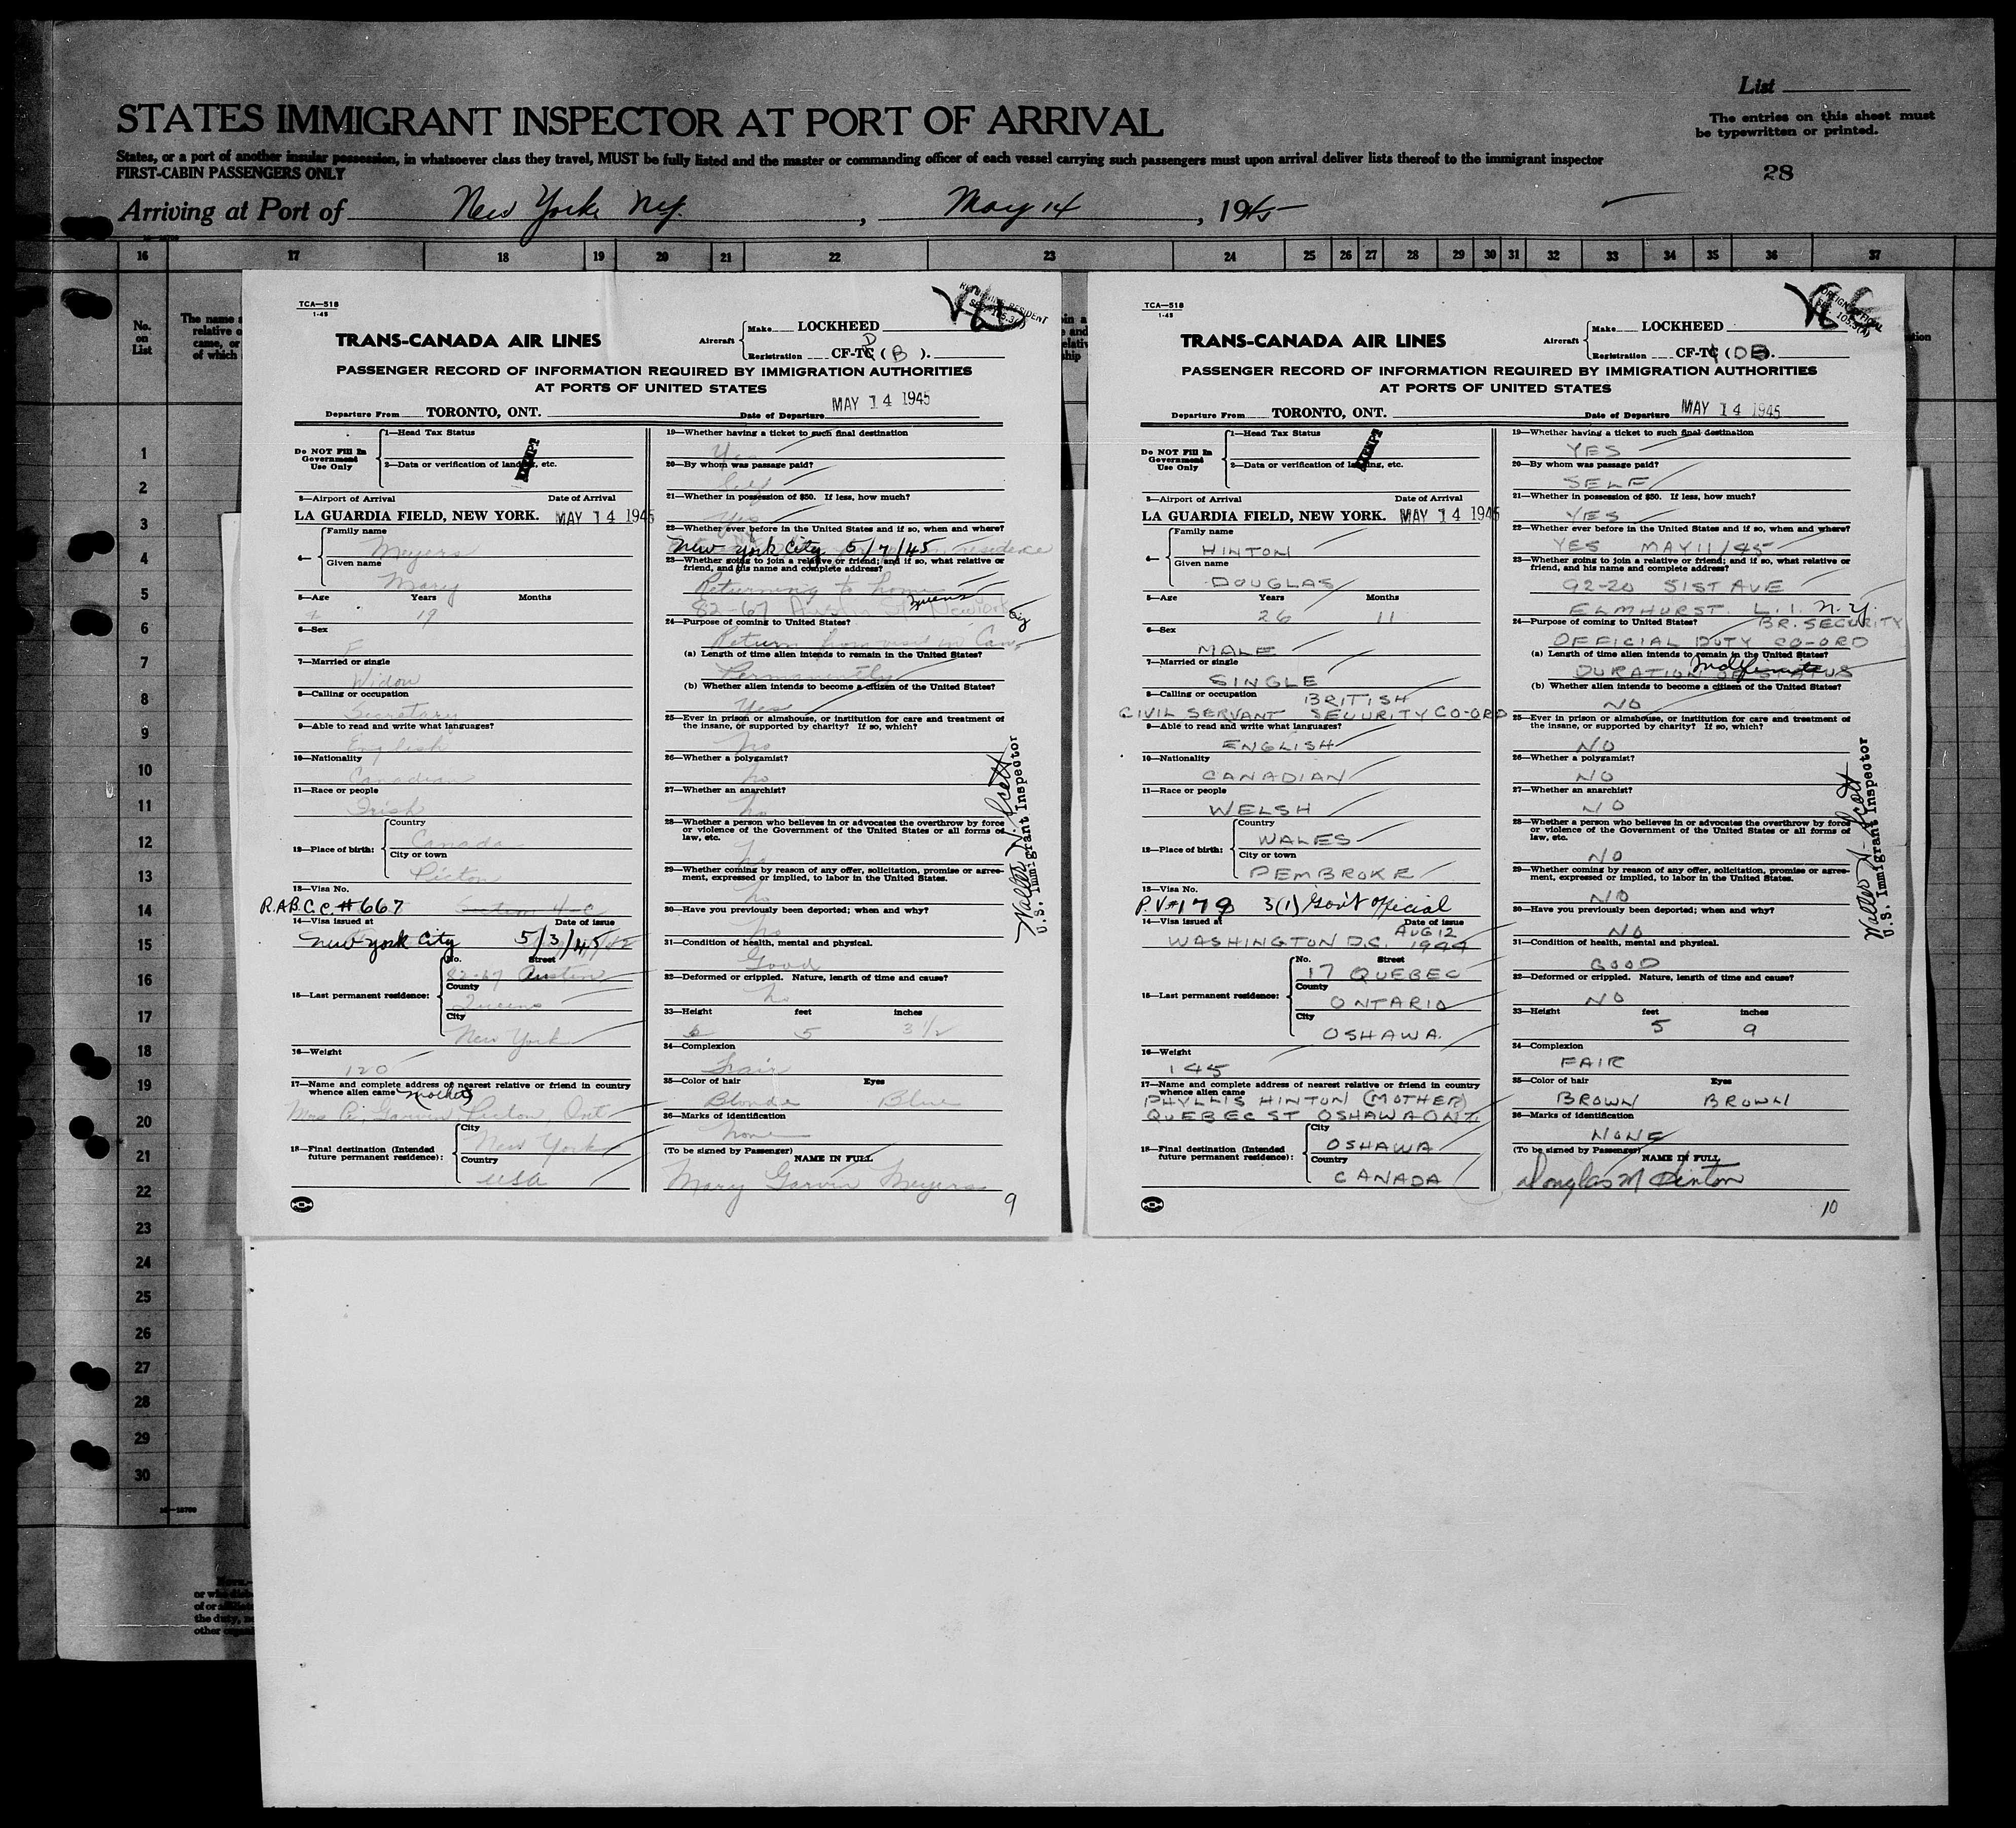 List
STATES IMMIGRANT INSPECTOR AT PORT OF ARRIVAL
The entries on this sheet must
be typewritten or printed.
States, or a port of another insular possession, in whatsoever class they travel, MUST be fully listed and the master or commanding officer of each vessel carrying such passengers must upon arrival deliver lists thereof to the immigrant inspector
FIRST-CABIN PASSENGERS ONLY
28
Arriving at Port of New York N.Y., May 14, 1945
16 17 18 19 20 21 22 23 24 25 26 27 28 29 30 31 32 33 34 35 36 37
No.
on
List
The name a
relative o
came, or
of which
1
2
3
4
5
6
7
8
9
10
11
12
13
14
15
16
17
18
19
20
21
22
23
24
25
26
27
28
29
30
of or
the duty,
other
TCA—518
1-45
TRANS-CANADA AIR LINES
Aircraft
Make LOCKHEED
Registration CF-TC (B).
D
PASSENGER RECORD OF INFORMATION REQUIRED BY IMMIGRATION AUTHORITIES
AT PORTS OF UNITED STATES
Departure From TORONTO, ONT.
Date of Departure MAY 14 1945
Do NOT Fill In
Government
Use Only
1—Head Tax Status
2—Data or verification of landing, etc.
EXEMPT
3—Airport of Arrival Date of Arrival
LA GUARDIA FIELD, NEW YORK. MAY 14 1945
4— Family name
Meyers
Given name
Mary
5—Age Years Months
19
6—Sex
F
7—Married or single
Widow
8—Calling or occupation
Secretary
9—Able to read and write what languages?
English
10—Nationality
Canadian
11—Race or people
Irish
12—Place of birth:
Country
Canada
City or town
Picton
13—Visa No.
R.A.B.C.C. #667
14—Visa issued at Date of issue
New York City 5/3/45
15—Last permanent residence:
No. Street
82-67 Austin
County
Queens
City
New York
16—Weight
120
17—Name and complete address of nearest relative or friend in country
whence alien came mother
Mrs Garvin Picton, Ont
18—Final destination (Intended
future permanent residence):
City
New York
Country
USA
19—Whether having a ticket to such final destination
Yes
20—By whom was passage paid?
Self
21—Whether in possession of $50. If less, how much?
Yes
22—Whether ever before in the United States and if so, when and where?
New York City 5/7/45 residence
23—Whether going to join a relative or friend; and if so, what relative or
friend, and his name and complete address?
Returning to home
82-67 Austin St. Queens New York
24—Purpose of coming to United States?
Return from visit in Can.
(a) Length of time alien intends to remain in the United States?
Permanently
(b) Whether alien intends to become a citizen of the United States?
Yes
25—Ever in prison or almshouse, or institution for care and treatment of
the insane, or supported by charity? If so, which?
no
26—Whether a polygamist?
no
27—Whether an anarchist?
no
28—Whether a person who believes in or advocates the overthrow by force
or violence of the Government of the United States or all forms of
law, etc.
no
29—Whether coming by reason of any offer, solicitation, promise or agree-
ment, expressed or implied, to labor in the United States.
no
30—Have you previously been deported; when and why?
no
31—Condition of health, mental and physical.
Good
32—Deformed or crippled. Nature, length of time and cause?
no
33—Height feet inches
5 3 1/2
34—Complexion
Fair
35—Color of hair Eyes
Blonde Blue
36—Marks of identification
none
(To be signed by Passenger) NAME IN FULL
Mary Garvin Meyers
9
Walter N. Scott
U.S. Immigrant Inspector
TCA—518
1-45
TRANS-CANADA AIR LINES
Aircraft
Make LOCKHEED
Registration CF-TC (DB.
PASSENGER RECORD OF INFORMATION REQUIRED BY IMMIGRATION AUTHORITIES
AT PORTS OF UNITED STATES
Departure From TORONTO, ONT.
Date of Departure MAY 14 1945
Do NOT Fill In
Government
Use Only
1—Head Tax Status
2—Data or verification of landing, etc.
EXEMPT
3—Airport of Arrival Date of Arrival
LA GUARDIA FIELD, NEW YORK. MAY 14 1945
4— Family name
HINTON
Given name
DOUGLAS
5—Age Years Months
26 11
6—Sex
MALE
7—Married or single
SINGLE
8—Calling or occupation
BRITISH
CIVIL SERVANT SECURITY CO-ORD
9—Able to read and write what languages?
ENGLISH
10—Nationality
CANADIAN
11—Race or people
WELSH
12—Place of birth:
Country
WALES
City or town
PEMBROKE
13—Visa No.
P.V.#179 3(1) Gov't official
14—Visa issued at Date of issue
WASHINGTON D.C. AUG 12 1944
15—Last permanent residence:
No. Street
17 QUEBEC
County
ONTARIO
City
OSHAWA.
16—Weight
145
17—Name and complete address of nearest relative or friend in country
whence alien came
PHYLLIS HINTON (MOTHER)
QUEBEC ST OSHAWA ONT.
18—Final destination (Intended
future permanent residence):
City
OSHAWA
Country
CANADA
19—Whether having a ticket to such final destination
YES
20—By whom was passage paid?
SELF
21—Whether in possession of $50. If less, how much?
YES
22—Whether ever before in the United States and if so, when and where?
YES MAY 11/45
23—Whether going to join a relative or friend; and if so, what relative or
friend, and his name and complete address?
92-20 51ST AVE
ELMHURST. L.I. N.Y.
24—Purpose of coming to United States?
BR. SECURITY
OFFICIAL DUTY CO-ORD
(a) Length of time alien intends to remain in the United States?
DURATION OF STATUS Indefinite
(b) Whether alien intends to become a citizen of the United States?
NO
25—Ever in prison or almshouse, or institution for care and treatment of
the insane, or supported by charity? If so, which?
NO
26—Whether a polygamist?
NO
27—Whether an anarchist?
NO
28—Whether a person who believes in or advocates the overthrow by force
or violence of the Government of the United States or all forms of
law, etc.
NO
29—Whether coming by reason of any offer, solicitation, promise or agree-
ment, expressed or implied, to labor in the United States.
NO
30—Have you previously been deported; when and why?
NO
31—Condition of health, mental and physical.
GOOD
32—Deformed or crippled. Nature, length of time and cause?
NO
33—Height feet inches
5 9
34—Complexion
FAIR
35—Color of hair Eyes
BROWN BROWN
36—Marks of identification
NONE
(To be signed by Passenger) NAME IN FULL
Douglas M Hinton
10
Walter N. Scott
U.S. Immigrant Inspector